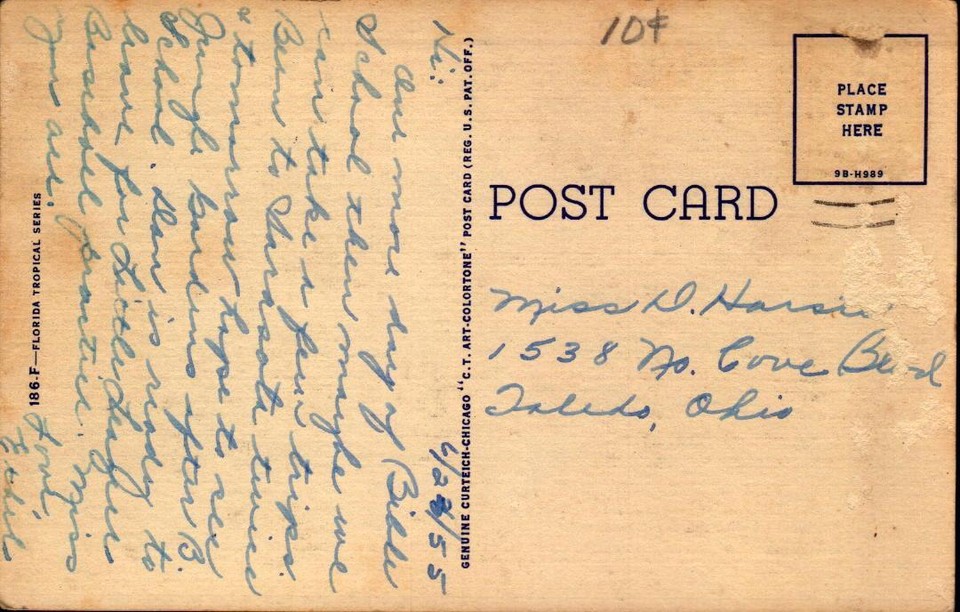 10¢
PLACE
STAMP
HERE
9B-H989
POST CARD
Miss D.
1538 No. Cove Blvd
Toledo, Ohio
GENUINE CURTEICH-CHICAGO "C.T. ART-COLORTONE" POST CARD (REG. U.S. PAT. OFF.)
186-F—FLORIDA TROPICAL SERIES
6/23/55
Hi:
One more day of Bible
School then maybe we
can take a few trips.
Been to Sarasota twice
& tomorrow hope to see
Jungle Gardens after B.
School. Don is ready to
leave for Little League
Baseball practice. Miss
you all.
Love,
Ethel